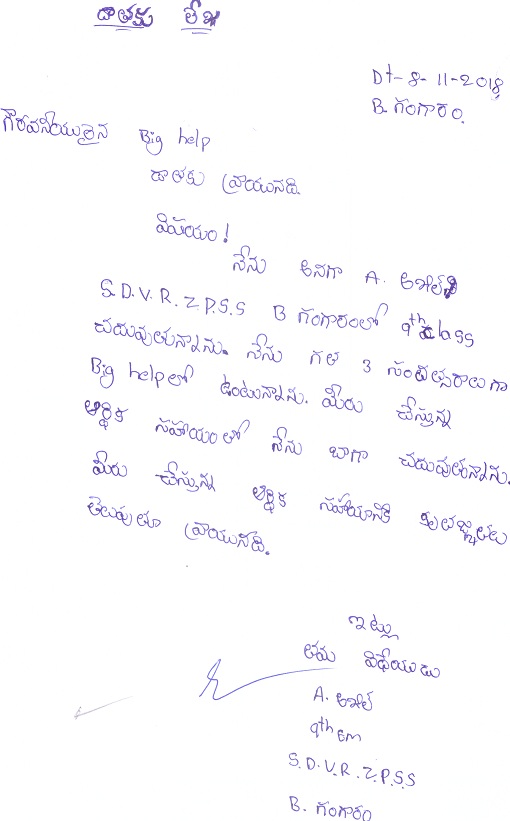 దాతకు లేఖ
Dt- 8-11-2018
B. గంగారం.
గౌరవనీయులైన Big help
దాతకు వ్రాయునది.
విషయం!
నేను అనగా A. అఖిల్
S. D. V. R. Z P.S.S B గంగారంలో 9th class
చదువుతున్నాను. నేను గత 3 సంవత్సరాలుగా
Big help లో ఉంటున్నాను. మీరు చేస్తున్న
ఆర్థిక సహాయంలో నేను బాగా చదువుతున్నాను.
మీరు చేస్తున్న ఆర్థిక సహాయానికి కృతజ్ఞతలు
తెలుపుతూ వ్రాయునది.
ఇట్లు
తమ విధేయుడు
A. అఖిల్
9th Em
S. D. V. R. Z. P. S. S
B. గంగారం